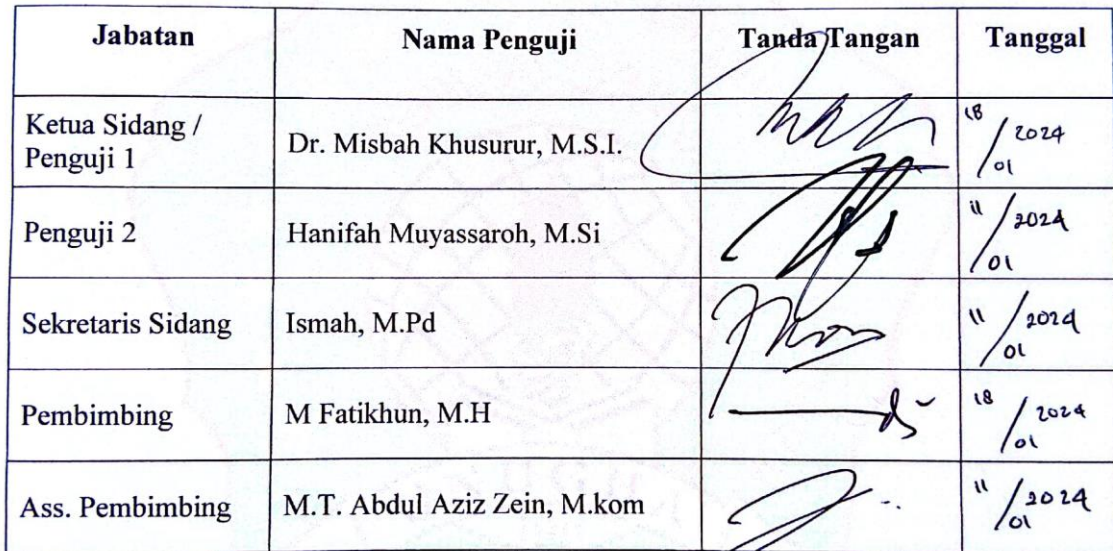 Jabatan Nama Penguji Tanda Tangan Tanggal
Ketua Sidang /
Penguji 1 Dr. Misbah Khusurur, M.S.I. 18/01 2024
Penguji 2 Hanifah Muyassaroh, M.Si 11/01 2024
Sekretaris Sidang Ismah, M.Pd 11/01 2024
Pembimbing M Fatikhun, M.H 18/01 2024
Ass. Pembimbing M.T. Abdul Aziz Zein, M.kom 11/01 2024